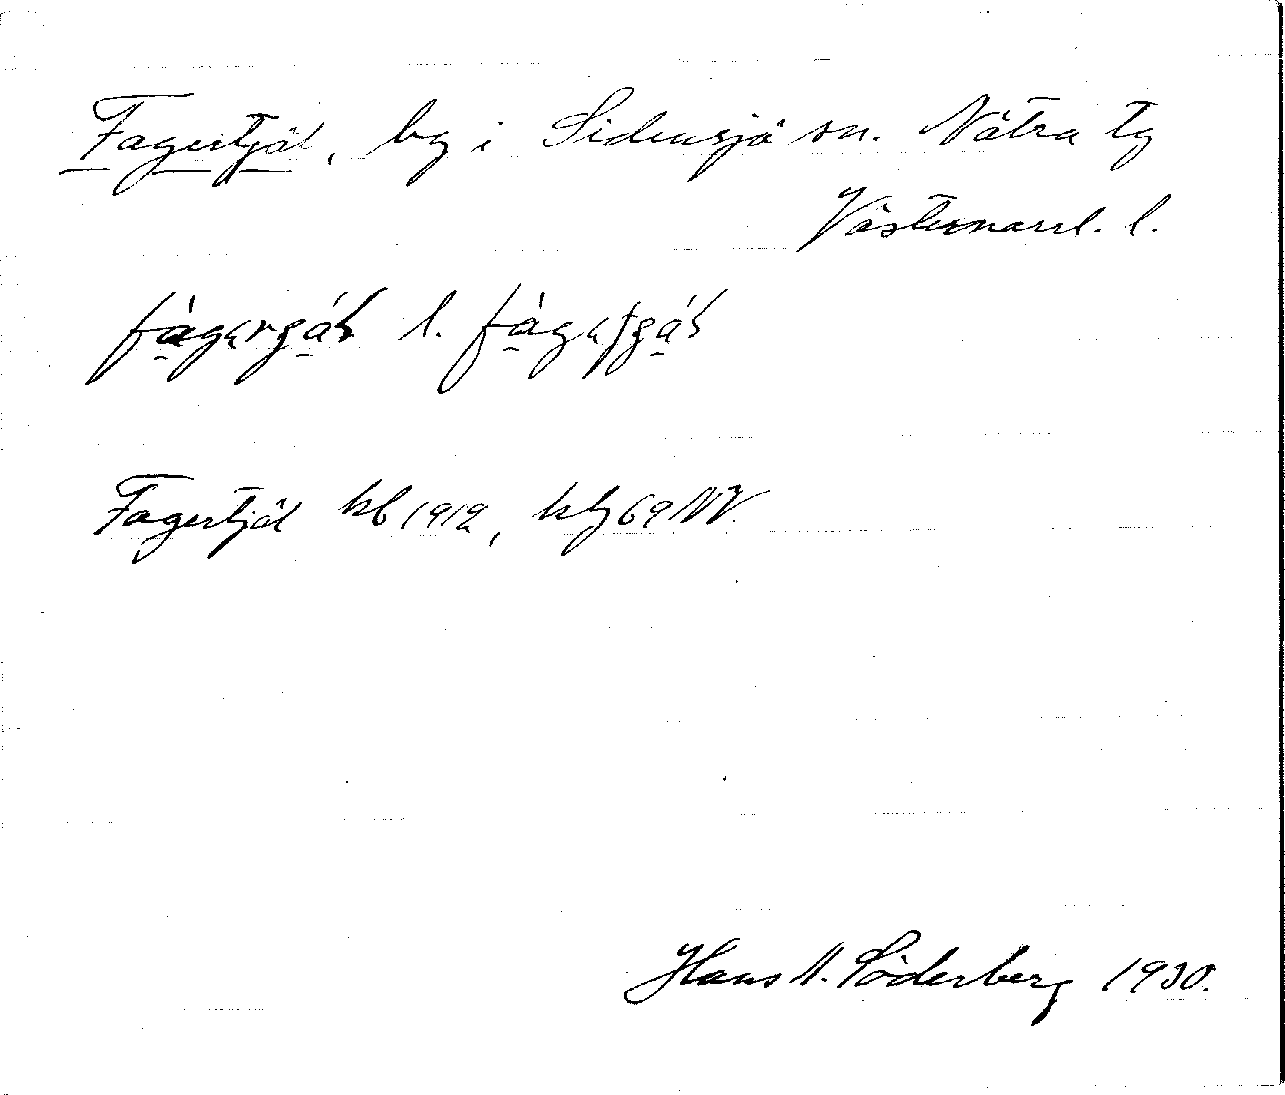 Fagertjäl, by i Sidensjö sn. Nätra tg
Västernorrl. l.
l.
Fagertjäl kb 1912, ktg 69 NV.
Hans A. Söderberg 1930.